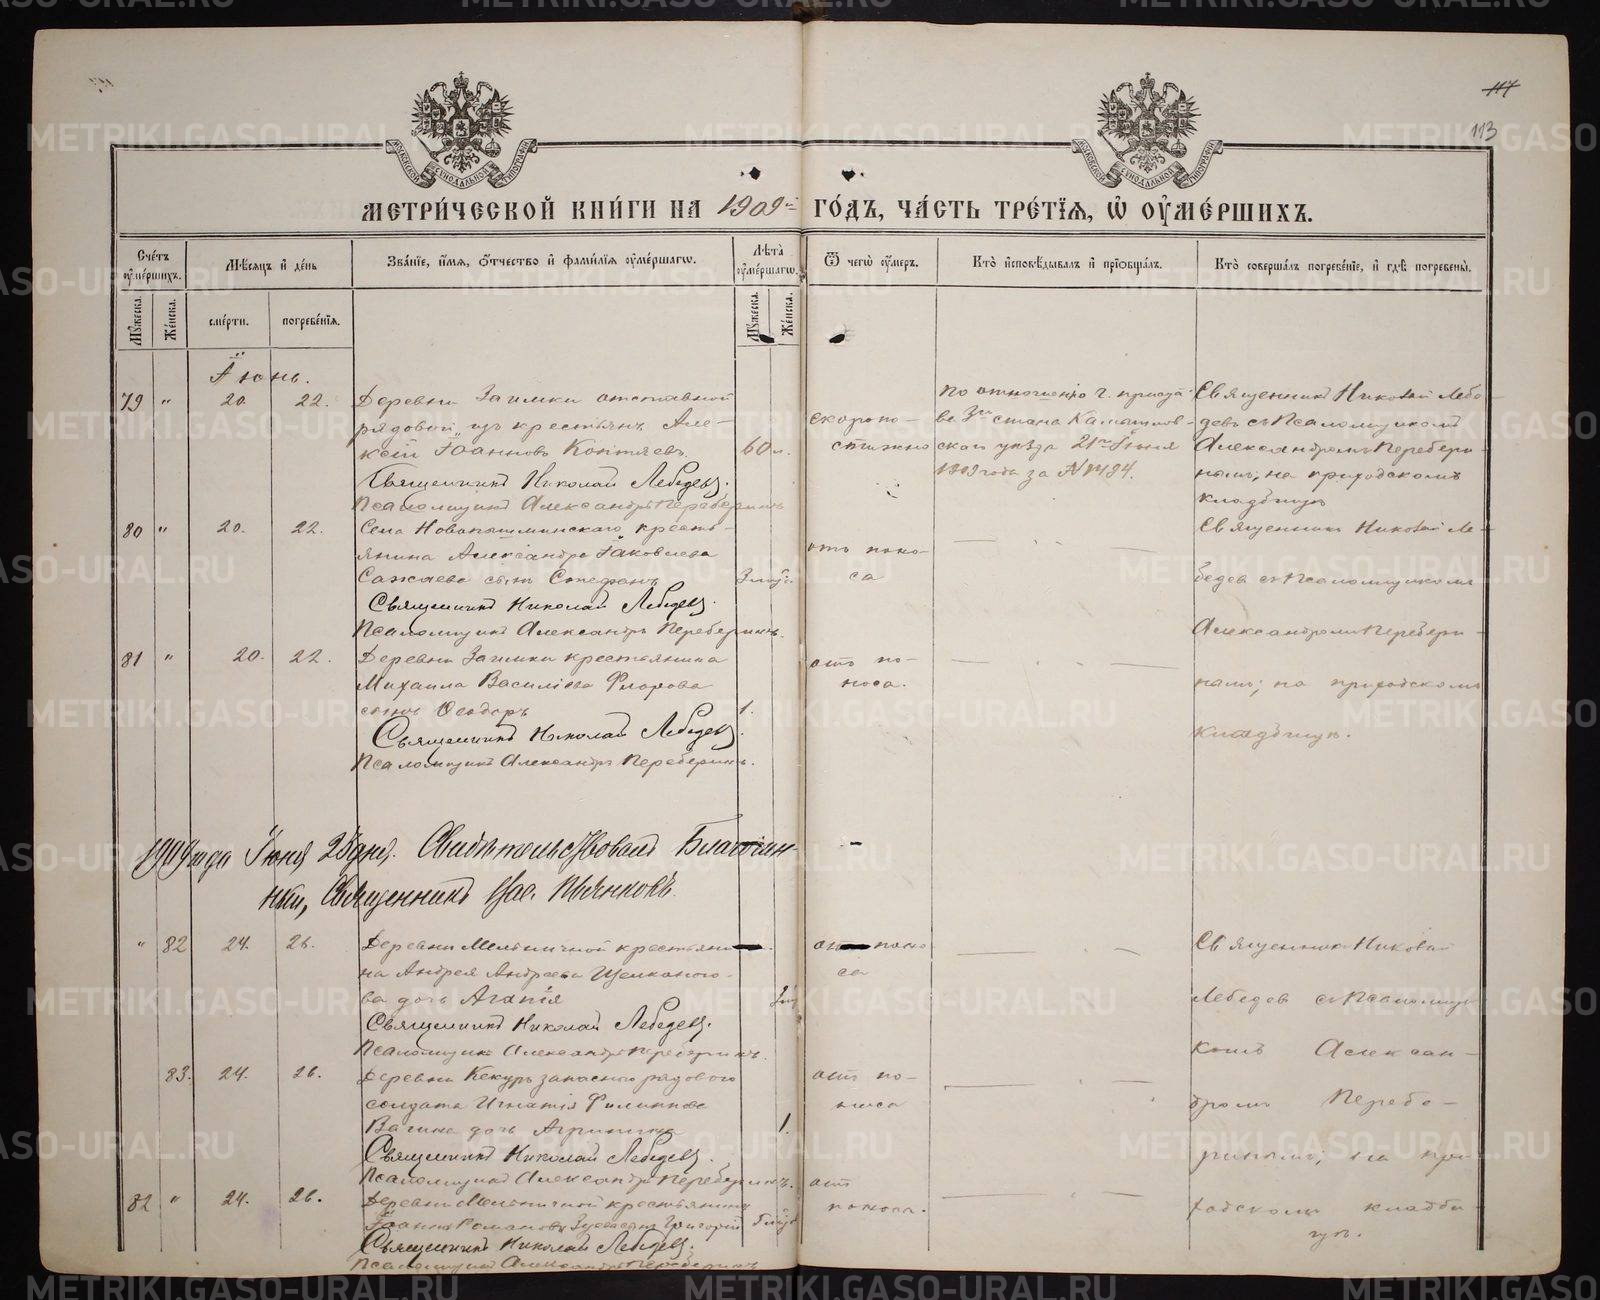 117
113
МЕТРИ́ЧЕСКОЙ КНИ́ГИ НА 1909й ГО́ДЪ, ЧА́СТЬ ТРЕ́ТІѦ, Ѡ ОУ҆МЕ́РШИХЪ.
Сче́тъ оу҆ме́ршихъ.
Мѣ́сѧцъ и҆ де́нь
Зва́нїе, и҆́мѧ, ѻ҆́тчество и҆ фами́лїѧ оу҆ме́ршагѡ.
Лѣ́та оу҆ме́ршагѡ.
Ѿ чегѡ̀ оу҆́меръ.
Кто̀ и҆сповѣ́дывалъ и҆ прїѡбща́лъ.
Кто̀ соверша́лъ погребе́нїе, и҆ гдѣ̀ погребены̀.
Мꙋ́жеска.
Же́нска.
сме́рти.
погребе́нїѧ.
Мꙋ́жеска.
Же́нска.
Іюнь.
79 " 20. 22.
Деревни Заимки отставной
рядовой изъ крестьянъ Але-
ксій Іоанновъ Коптяевъ. 60 л.
Священникъ Николай Лебедевъ.
Псаломщикъ Александръ Переберинъ
скоропо-
стижно
По отношенію г. приста-
ва 3го стана Камышлов-
скаго уѣзда 21го Іюня
1909 года за №
Священникъ Николай Лебе-
девъ съ Псаломщикомъ
Александромъ Перебери-
нымъ; на приходскомъ
кладбищѣ
80 " 20. 22.
Села Новопышминскаго кресть-
янина Александра Іаковлева
Сажаева сынъ Стефанъ
Священникъ Николай Лебедевъ.
Псаломщикъ Александръ Переберинъ.
отъ поно-
са
Священникъ Николай Ле-
бедевъ съ Псаломщикомъ
Александромъ Перебери-
нымъ; на приходскомъ
кладбищѣ.
81 " 20. 22.
Деревни Заимки крестьянина
Михаила Василіева Флорова
сынъ Ѳеодоръ 1.
Священникъ Николай Лебедевъ.
Псаломщикъ Александръ Переберинъ.
отъ по-
носа.
1909 года Іюня 25 дня. Свидѣтельствовалъ Благочин-
ный, Священникъ Пьянковъ.
" 82 24. 26.
Деревни Мельничной крестьяни-
на Андрея Андреева
ва дочь Агапія
Священникъ Николай Лебедевъ.
Псаломщикъ Александръ Переберинъ.
отъ поно
са
Священникъ Николай
Лебедевъ съ Псаломщи-
комъ Алексан-
дромъ Перебе-
ринымъ; на при-
ходскомъ кладби-
щѣ.
83. 24. 26.
Деревни Кекуръ запаснаго рядового
солдата Игнатія Филиппова
Вагина дочь Агрипина 1.
Священникъ Николай Лебедевъ.
Псаломщикъ Александръ Переберинъ.
отъ по-
носа
82 " 24. 26.
Деревни Мельничной крестьянинъ
Іоаннъ Романовъ Григорій
Священникъ Николай Лебедевъ.
Псаломщикъ Александръ Переберинъ
отъ
поноса.
METRIKI.GASO-URAL.RU